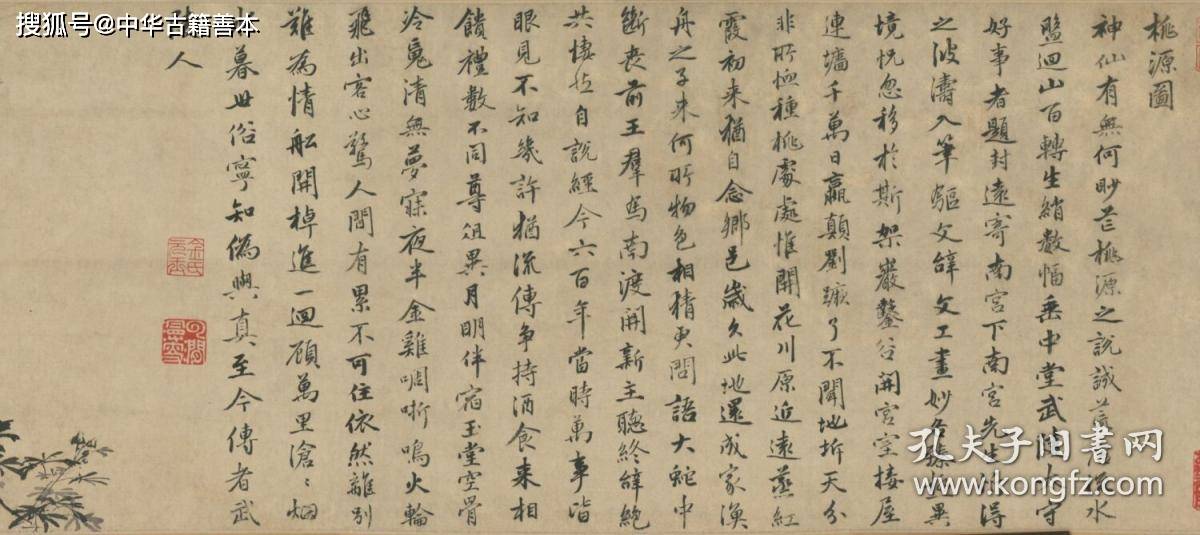 搜狐号@中华古籍善本
桃源圖
神仙有無何眇芒桃源之説誠荒唐流水
盤迴山百轉生綃數幅垂中堂武陵太守
好事者題封遠寄南宮下南宮先生忻得
之波濤入筆驅文辭文工畫妙各臻極異
境恍忽移於斯架巖鑿谷開宮室接屋
連墻千萬日嬴顛劉蹶了不聞地坼天分
非所恤種桃處處惟開花川原近遠蒸紅
霞初來猶自念鄉邑歲久此地還成家漁
舟之子來何所物色相猜更問語大蛇中
斷喪前王羣馬南渡開新主聽終辭絕
共悽然自說經今六百年當時萬事皆
眼見不知幾許猶流傳爭持酒食來相
饋禮數不同尊俎異月明伴宿玉堂空骨
冷魂清無夢寐夜半金雞啁哳鳴火輪
飛出客心驚人間有累不可住依然離別
難為情船開棹進一迴顧萬里滄〻烟
暮世俗寧知偽與真至今傳者武
人
孔夫子旧书网
www.kongfz.com